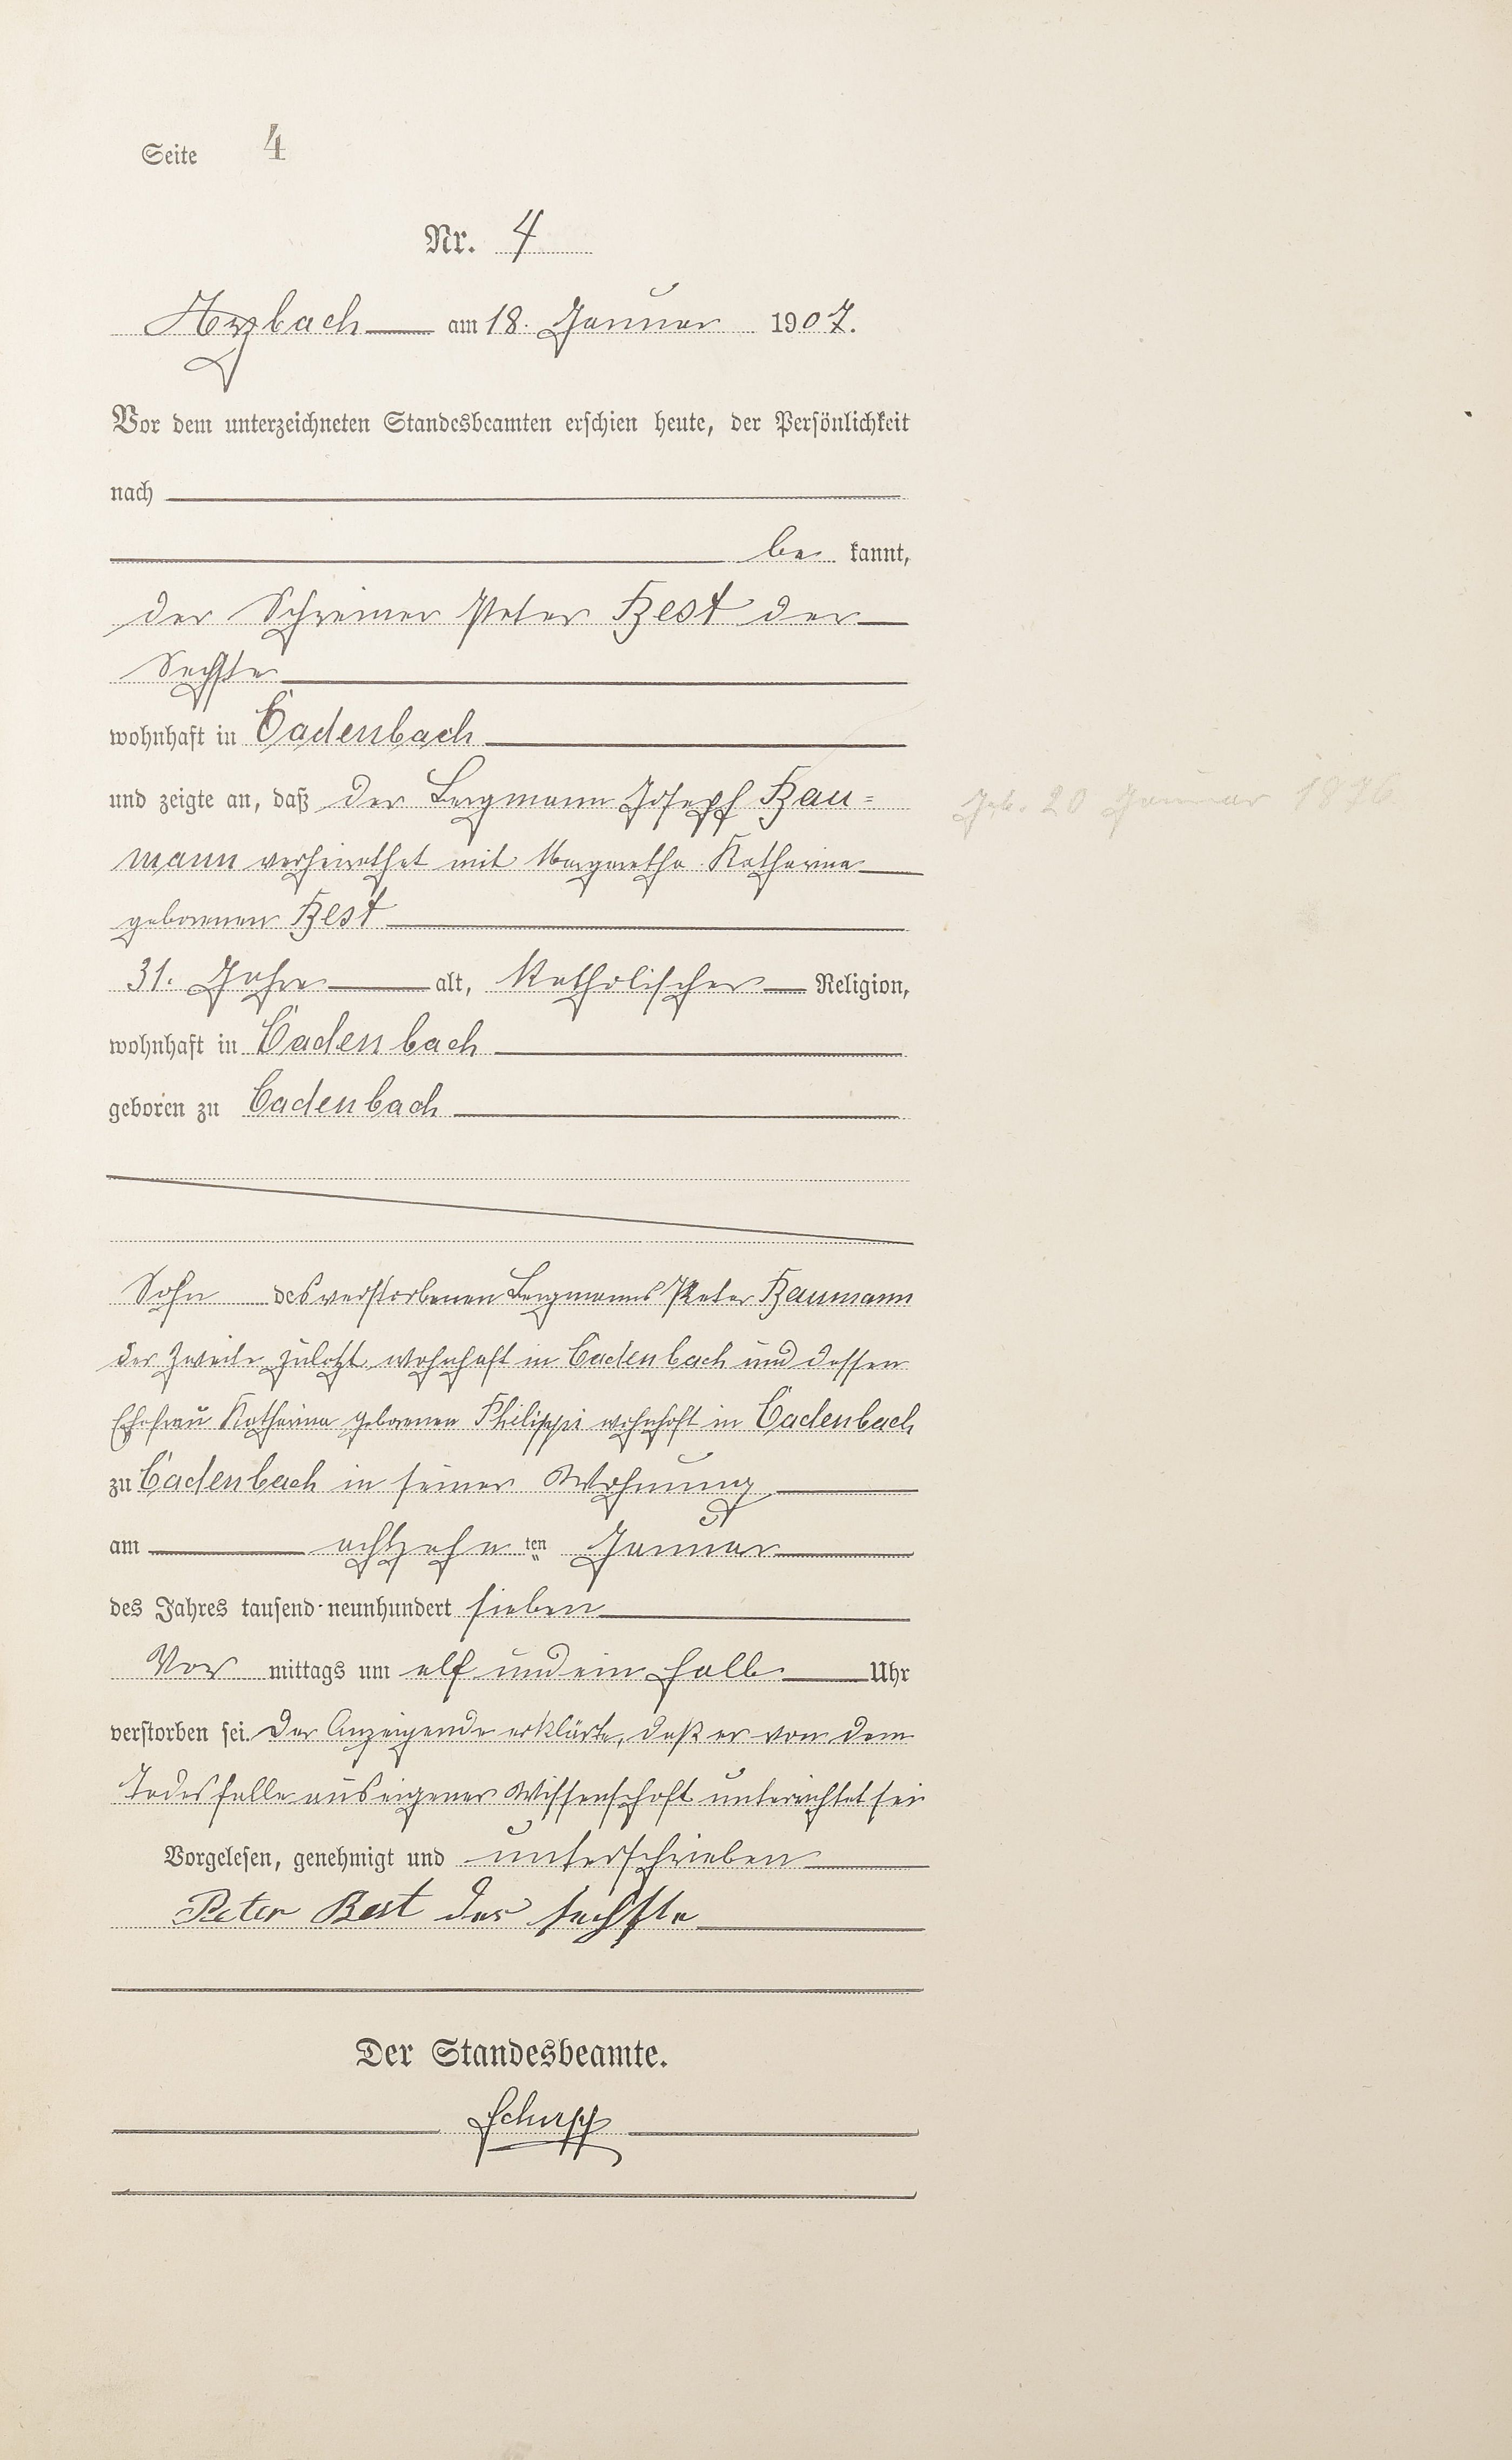 Seite 4
Nr. 4
Arzbach am 18. Januar 1907.
Vor dem unterzeichneten Standesbeamten erschien heute, der Persönlichkeit
nach
be kannt,
der Schreiner Peter Best der
Sechste
wohnhaft in Cadenbach
und zeigte an, daß der Bergmann Joseph Bau=
mann verheirathet mit Margaretha Katharina
geborenen Best
31. Jahre alt, Katholischer Religion,
wohnhaft in Cadenbach
geboren zu Cadenbach
Sohn des verstorbenen Bergmanns Peter Baumann
der Zweite zuletzt wohnhaft in Cadenbach und dessen
Ehefrau Katharina geborenen Philippi wohnhaft in Cadenbach
zu Cadenbach in seiner Wohnung
am achtzehn ten Januar
des Jahres tausend neunhundert sieben
Vor mittags um elf und ein halb Uhr
verstorben sei. Der Anzeigende erklärte, daß er von dem
Todesfalle aus eigener Wissenschaft unterrichtet sei
Vorgelesen, genehmigt und unterschrieben
Peter Best der sechste
Der Standesbeamte.
Geb. 20 Januar 1876